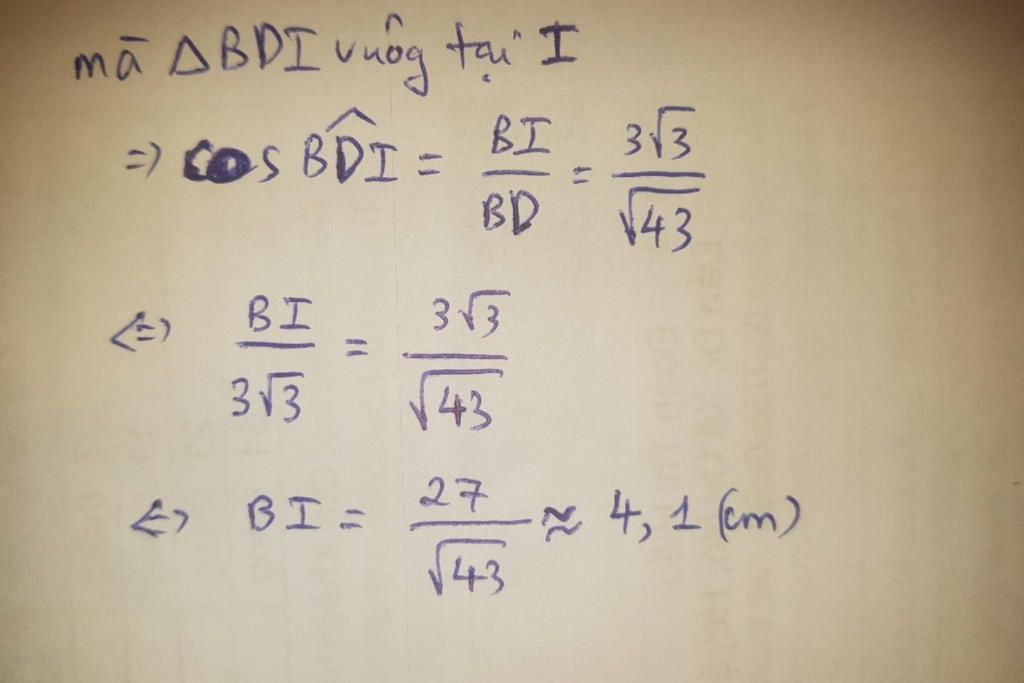 mà ΔBDI vuôg tại I
=> cos BD̂I = BI/BD = 3√3/√43
<=> BI/3√3 = 3√3/√43
<=> BI = 27/√43 ≈ 4,1 (cm)